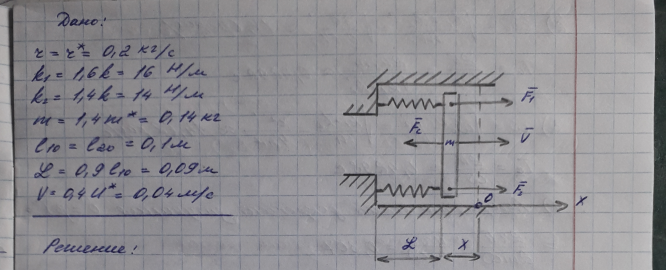 Дано:
r = r* = 0,2 кг/с
k₁ = 1,6k = 16 Н/м
k₂ = 1,4k = 14 Н/м
m = 1,4m* = 0,14 кг
l₁₀ = l₂₀ = 0,1 м
L = 0,9 l₁₀ = 0,09 м
V = 0,4 U* = 0,04 м/с
Решение:
F̅₁
F̅c
m
V̅
F̅₂
O
X
L
X